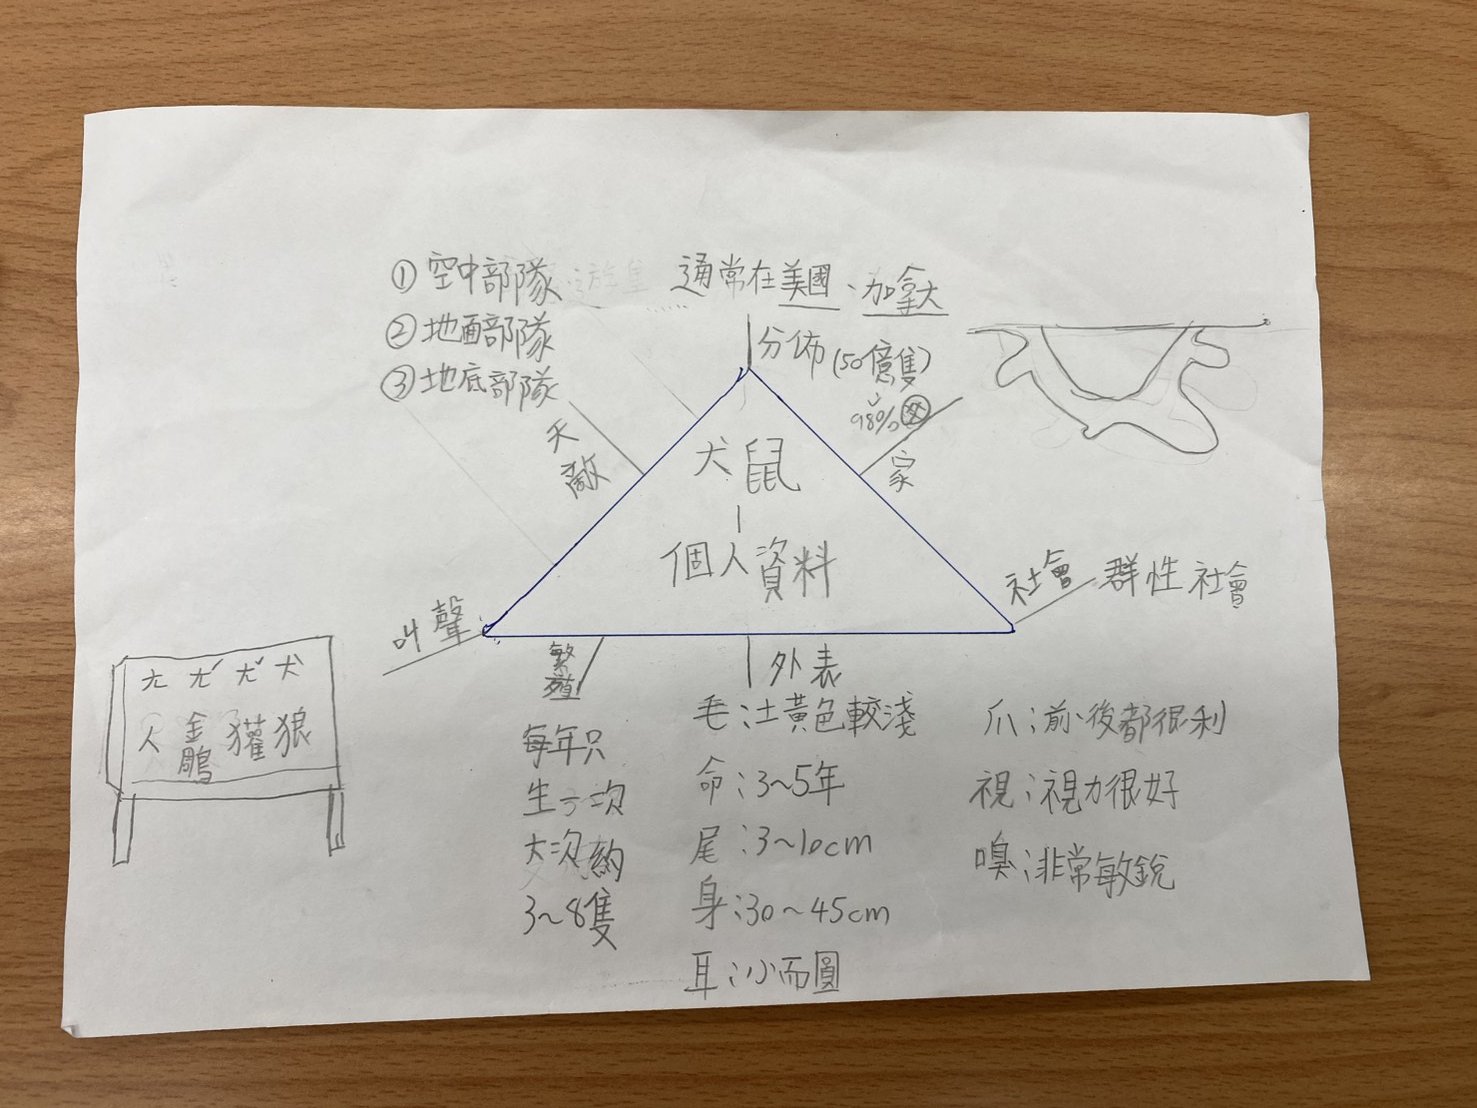 ①空中部隊
②地面部隊
③地底部隊
天敵
通常在美國、加拿大
分佈(50億隻)
98%
家
犬鼠
|
個人資料
社會 群性社會
叫聲
ㄤ ㄤˊ ㄤˇ 犬
人 金鵰 獾 狼
繁殖
每年只
生一次
次約
3~8隻
外表
毛:土黃色較淺
命:3~5年
尾:3~10cm
身:30~45cm
耳:小而圓
爪:前、後都很利
視:視力很好
嗅:非常敏銳